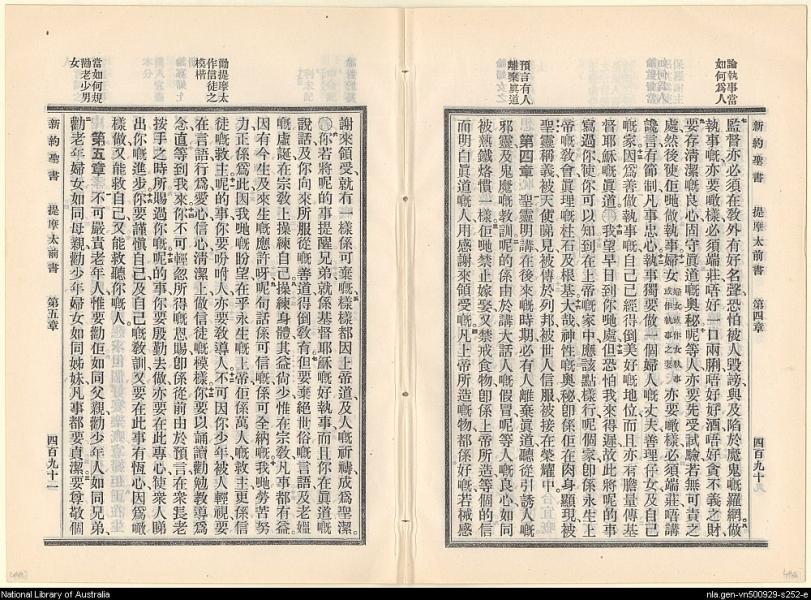 論執事當
如何爲人
預言有人
離棄眞道
新約聖書 提摩太前書 第四章 四百九十
監督亦必須在敎外有好名聲、恐怕被人毀謗、與及陷於魔鬼嘅羅網。做
執事嘅亦要噉樣、必須端莊、唔好一口兩脷、唔好好酒、唔好貪不義之財、
要存清潔嘅良心、固守眞道嘅奧秘。呢等人亦要先受試驗、若無可責之
處、然後使佢哋做執事。婦女婦女或作女執事或作執事之妻亦要噉樣、必須端莊、唔講
讒言、有節制、凡事忠心。執事獨要做一個婦人嘅丈夫、善理仔女及自己
嘅家。因爲善做執事嘅、自己已經得倒美好嘅地位、而且亦有膽量傳基
督耶穌嘅眞道。○我望早日到你哋處、但恐怕我來得遲、故此將呢的事
寫過你、使你可以知到在上帝嘅家中應該點樣行、呢個家卽係永生上
帝嘅敎會、眞理嘅柱石及根基。大哉神性嘅奧秘、卽係佢在肉身顯現、被
聖靈稱義、被天使睇見、被傳於列邦、被世人信服、被接在榮耀中。
第四章 聖靈明講、在後來嘅時期、必有人離棄眞道、聽從引誘人嘅
邪靈、及鬼魔嘅敎訓、呢的係由於講大話人嘅假冒、呢等人嘅良心如同
被熱鐵烙慣一樣、佢哋禁止嫁娶、又禁戒食物、卽係上帝所造、等個的信
而明白眞道嘅人、用感謝來領受嘅。凡上帝所造嘅物都係好嘅、若械感
勖提摩太
作信徒之
模楷
當如何規
勸老少男
女
謝來領受、就有一樣係可棄嘅、樣樣都因上帝道及人嘅祈禱成爲聖潔。
○你若將呢的事提醒兄弟、就係基督耶穌嘅好執事、而且你在眞道嘅
說話及你向來所服從嘅善道得倒敎育、但要棄絕世俗嘅言語、及老媼
嘅虛誕、在宗敎上操練自己、操練身體其益尙少、惟在宗敎凡事都有益、
因有今生及來生嘅應許、呀呢句話係可信嘅、係可全納嘅、我哋勞苦努
力、正係爲此、因我哋嘅盼望在乎永生嘅上帝、佢係萬人嘅救主、更係信
徒嘅救主。呢的事你要吩咐人、亦要敎導人、不可因你少年被人輕視、要
在言語行爲愛心信心清潔上、做信徒嘅模樣。你要以誦讀勸勉敎導爲
念、直等到我來。你不可輕忽所得嘅恩賜、卽係從前由於預言、在衆長老
按手之時所賜過你嘅、呢的事你要殷勤去做、亦要在此專心、使衆人睇
出你嘅進步。你要謹愼自己、及自己嘅敎訓、又要在此事有恆心、因爲噉
樣做又能救自己、又能救聽你嘅人。
第五章 不可嚴責老年人、惟要勸佢如同父親、勸少年人如同兄弟、
勸老年婦女如同母親、勸少年婦女如同姊妹、凡事都要貞潔。要尊敬個
新約聖書 提摩太前書 第五章 四百九十一
National Library of Australia
nla.gen-vn500929-s252-e